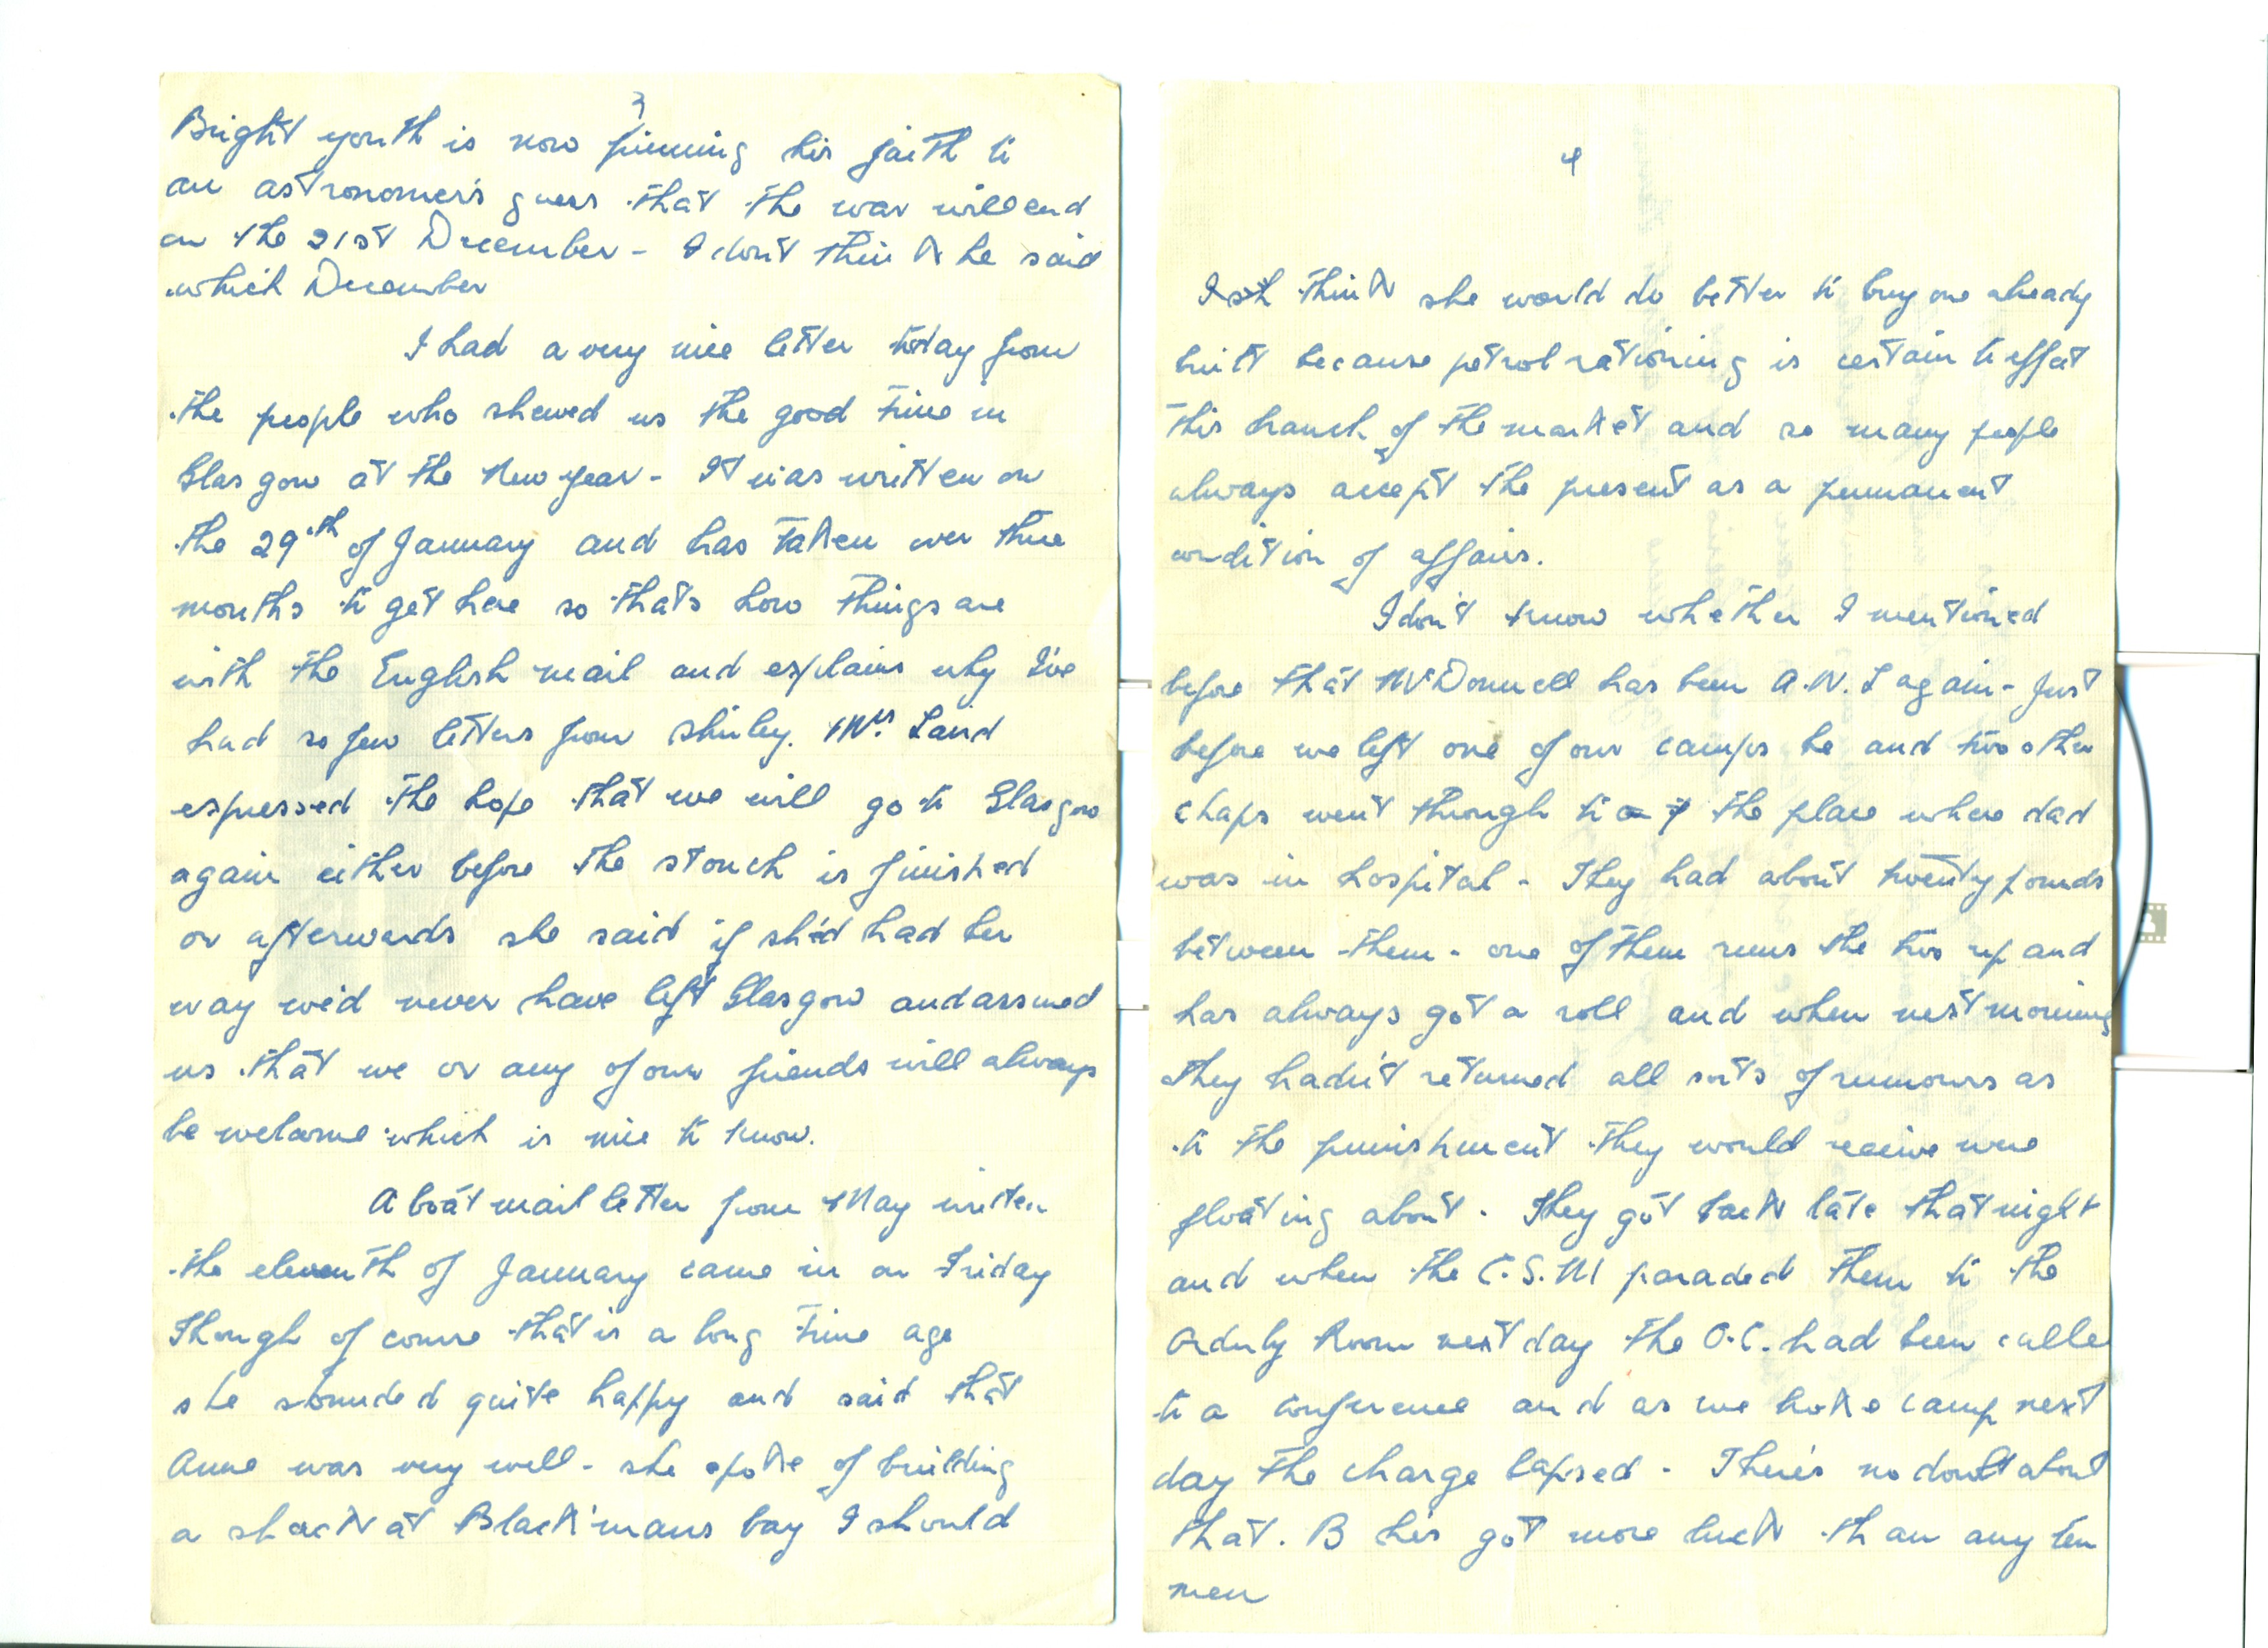 3
Bright youth is now pinning his faith to
an astronomer's guess that the war will end
on the 21st December - I don't think he said
which December
I had a very nice letter today from
the people who shewed us the good time in
Glasgow at the New Year - It was written on
the 29th of January and has taken over three
months to get here so thats how things are
with the English mail and explains why I've
had so few letters from Shirley. Mrs. Laird
expressed the hope that we will go to Glasgow
again either before the stouch is finished
or afterwards she said if she'd had her
way we'd never have left Glasgow and assured
us that we or any of our friends will always
be welcome which is nice to know.
A boat mail letter from May written
the eleventh of January came in on Friday
Though of course that is a long time ago
she sounded quite happy and said that
Anne was very well - she spoke of building
a shack at Blackmans bay I should
4
think she would do better to buy one already
built because petrol rationing is certain to effect
this branch of the market and so many people
always accept the present as a permanent
condition of affairs.
I don't know whether I mentioned
before that McDonnell has been A.W.L again - Just
before we left one of our camps he and two other
chaps went through to the place where dad
was in hospital - They had about twenty pounds
between them - one of them runs the two up and
has always got a roll and when next morning
they hadn't returned all sorts of rumours as
to the punishment they would receive were
floating about. They got back late that night
and when the C.S.M paraded them to the
Orderly Room next day the O.C. had been calle
to a conference and as we broke camp next
day the charge lapsed - There's no doubt about
that. B he's got more luck than any ten
men